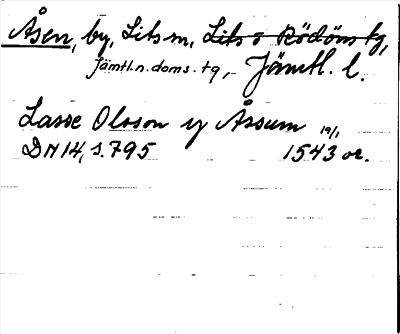 Åsen, by, Lits sn, Lits o Rödöns tg,
Jämtl.n.doms.tg, Jämtl. l.
Lasse Olsson y Åssum 19/1
DN 14, s. 795 1543 or.